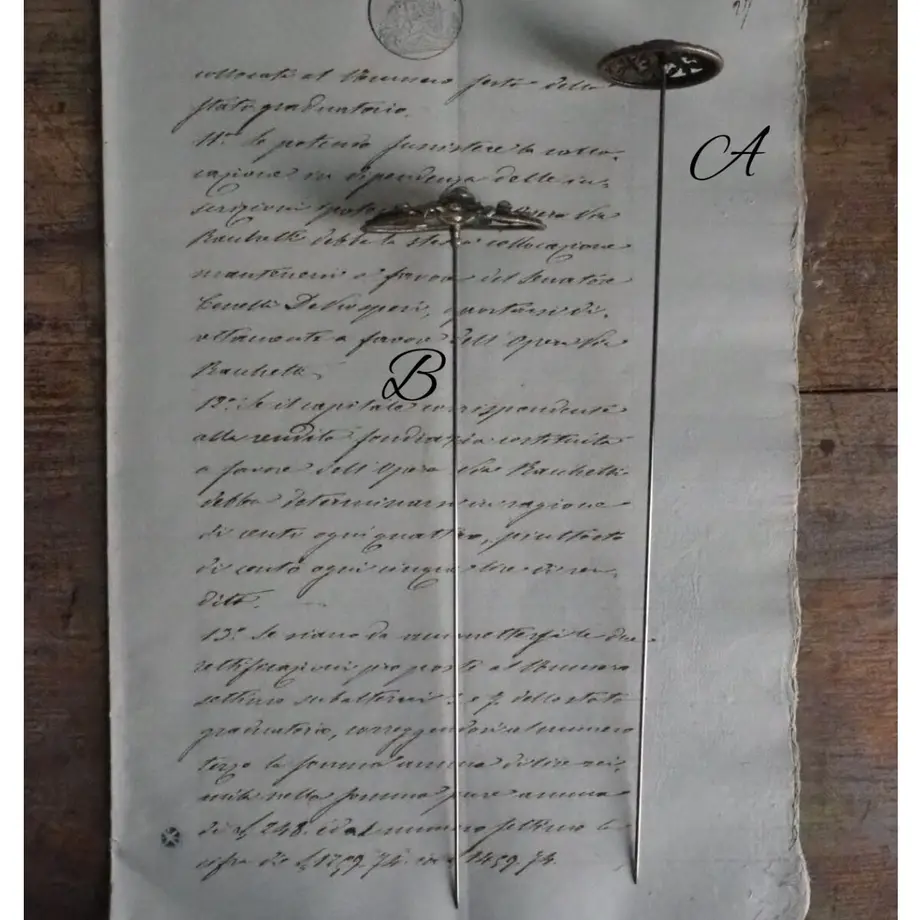 collocati al Numero sesto dello
stato graduatorio.
11.° Se potendo sussistere la collo-
cazione in dipendenza delle in-
scrizioni Opera Pia
Bachetti debba la stessa collocazione
mantenersi a favore del Senatore
De Prosperi, o portarsi di-
rettamente a favore dell'Opera Pia
Bachetti.
12.° Se il capitale corrispondente
alla rendita fondiaria costituita
a favore dell'Opera Pia Bachetti
debba determinarsi in ragione
di cento ogni quattro, piuttosto
di cento ogni cinque lire di ren-
dita.
13.° Se siano da ammettersi le due
rettificazioni pro posti al Numero
settimo subalterni e 7. dello stato
graduatorio, correggendosi al numero
terzo la somma annua di lire
nella somma pure annua
di 248. ed al numero settimo la
cifra di 1459. 74.
A
B